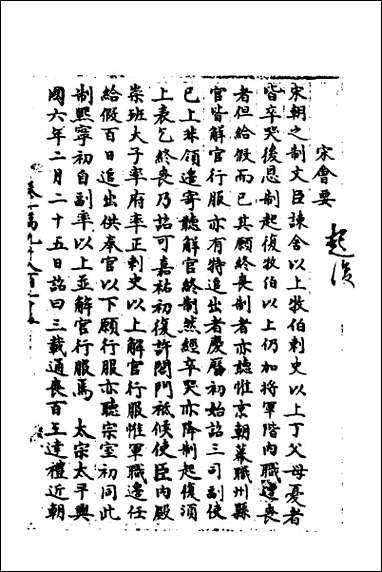 宋會要
起復
宋朝之制文臣諫舍以上牧伯刺史以上丁父母憂者
皆卒哭後恩制起復牧伯以上仍加將軍階内職遭喪
者但給假而已其願終喪制者亦聽惟京朝幕職州縣
官皆解官行服亦有特追出者慶曆初始詔三司副使
已上非領邊寄聽解官終制然經卒哭亦降制起復須
上表乞終喪乃詔可嘉祐初復許閤門祗候使臣内殿
崇班太子率府率正刺史以上解官行服惟軍職邊任
給假百日追出供奉官以下願行服亦聽宗室初同此
制熙寧初自副率以上並解官行服焉 太宗太平興
國六年二月二十五日詔曰三載通喪百王達禮近朝